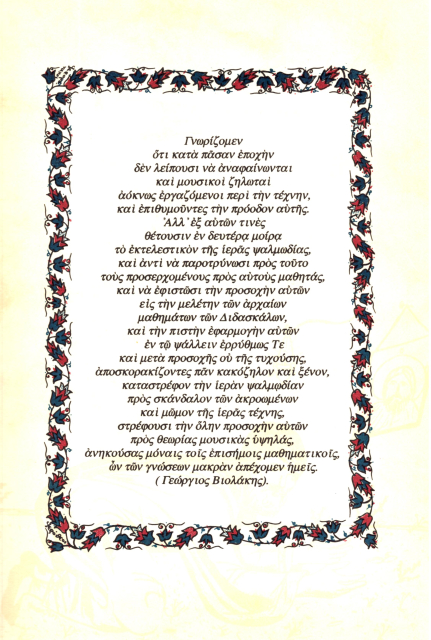 Γνωρίζομεν
ὅτι κατὰ πᾶσαν ἐποχὴν
δὲν λείπουσι νὰ ἀναφαίνωνται
καὶ μουσικοὶ ζηλωταὶ
ἀόκνως ἐργαζόμενοι περὶ τὴν τέχνην,
καὶ ἐπιθυμοῦντες τὴν πρόοδον αὐτῆς.
Ἀλλ' ἐξ αὐτῶν τινὲς
θέτουσιν ἐν δευτέρᾳ μοίρᾳ
τὸ ἐκτελεστικὸν τῆς ἱερᾶς ψαλμωδίας,
καὶ ἀντὶ νὰ παροτρύνωσι πρὸς τοῦτο
τοὺς προσερχομένους πρὸς αὐτοὺς μαθητάς,
καὶ νὰ ἐφιστῶσι τὴν προσοχὴν αὐτῶν
εἰς τὴν μελέτην τῶν ἀρχαίων
μαθημάτων τῶν Διδασκάλων,
καὶ τὴν πιστὴν ἐφαρμογὴν αὐτῶν
ἐν τῷ ψάλλειν ἐρρύθμως Τε
καὶ μετὰ προσοχῆς οὐ τῆς τυχούσης,
ἀποσκορακίζοντες πᾶν κακόζηλον καὶ ξένον,
καταστρέφον τὴν ἱερὰν ψαλμωδίαν
πρὸς σκάνδαλον τῶν ἀκροωμένων
καὶ μῶμον τῆς ἱερᾶς τέχνης,
στρέφουσι τὴν ὅλην προσοχὴν αὐτῶν
πρὸς θεωρίας μουσικὰς ὑψηλάς,
ἀνηκούσας μόναις τοῖς ἐπισήμοις μαθηματικοῖς,
ὧν τῶν γνώσεων μακρὰν ἀπέχομεν ἡμεῖς.
( Γεώργιος Βιολάκης).